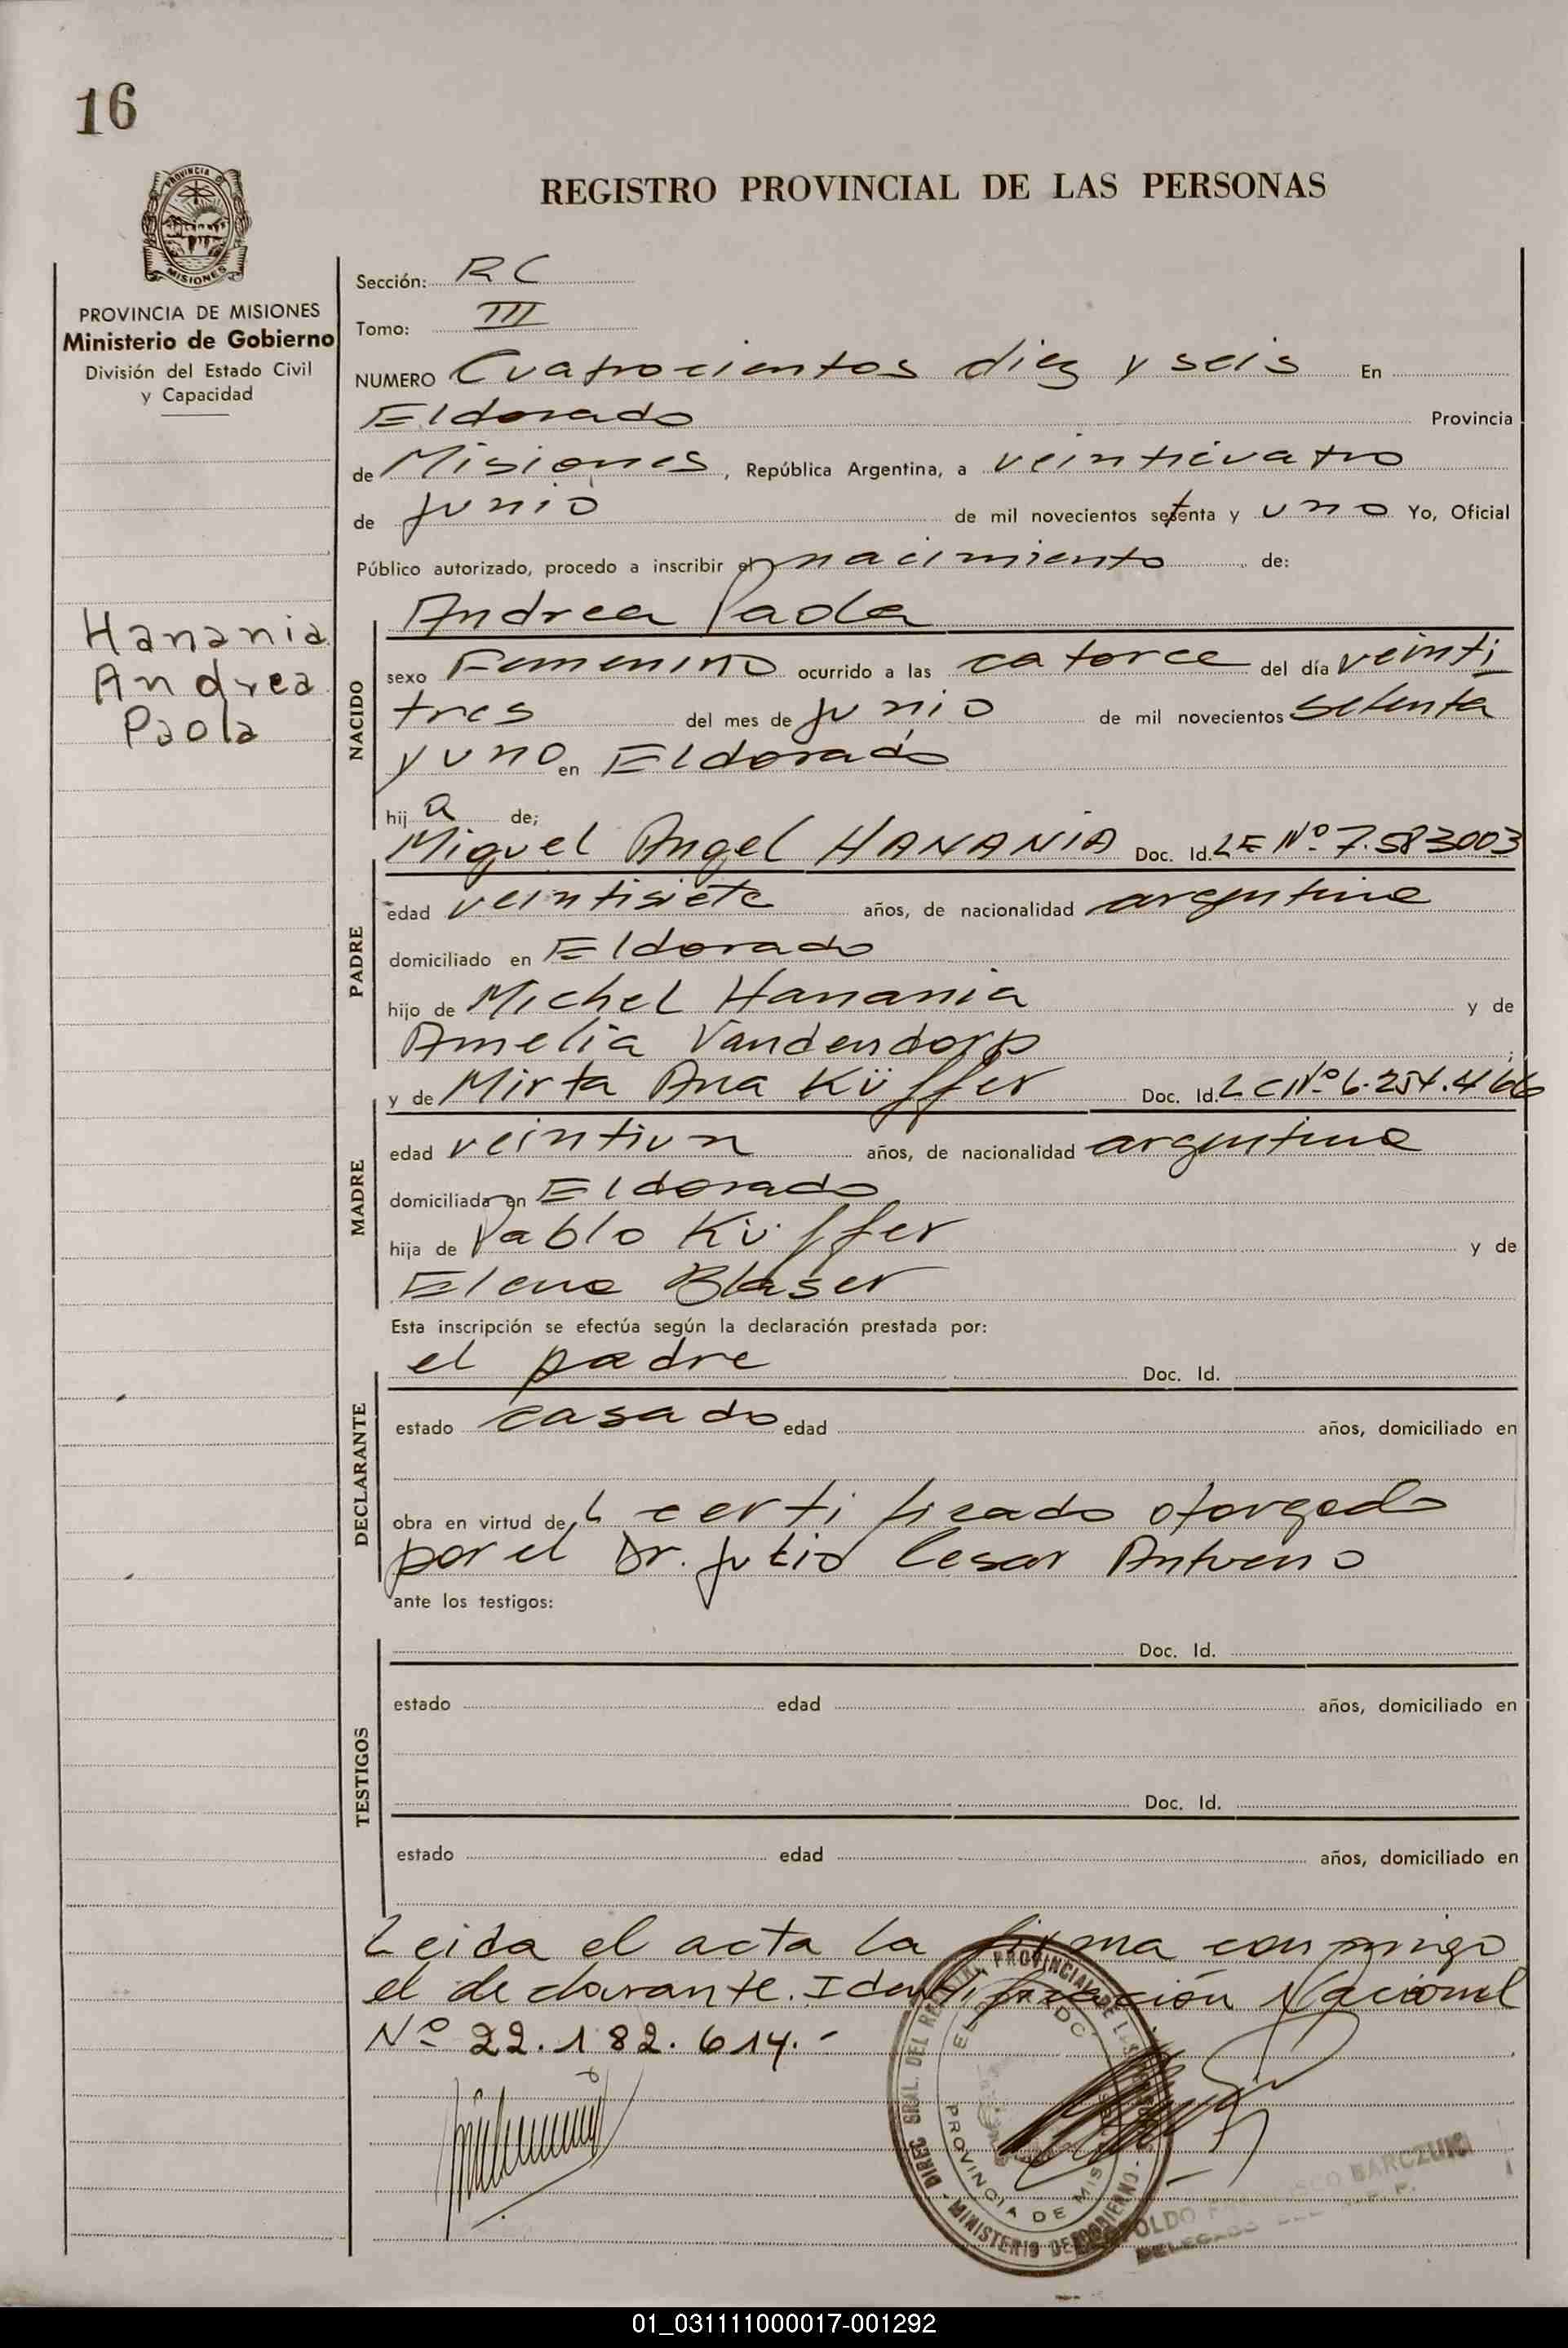 16
PROVINCIA DE
MISIONES
REGISTRO PROVINCIAL DE LAS PERSONAS
PROVINCIA DE MISIONES
Ministerio de Gobierno
División del Estado Civil
y Capacidad
Hanania
Andrea
Paola
Sección: RC
Tomo: III
NUMERO Cuatrocientos diez y seis En
Eldorado Provincia
de Misiones, República Argentina, a veinticuatro
de junio de mil novecientos setenta y uno Yo, Oficial
Público autorizado, procedo a inscribir el nacimiento de:
Andrea Paola
NACIDO
sexo Femenino ocurrido a las catorce del día veinti
tres del mes de junio de mil novecientos setenta
y uno en Eldorado
hij a de;
Miguel Angel HANANIA Doc. Id. LE Nº 7.583003
PADRE
edad veintisiete años, de nacionalidad argentina
domiciliado en Eldorado
hijo de Michel Hanania y de
Amelia Vandendorp;
y de Mirta Ana Küffer Doc. Id. LC Nº 6.254.466
MADRE
edad veintiun años, de nacionalidad argentina
domiciliada en Eldorado
hija de Pablo Küffer y de
Elena Blaser
Esta inscripción se efectúa según la declaración prestada por:
el padre Doc. Id.
DECLARANTE
estado casado edad años, domiciliado en
obra en virtud de l certificado otorgado
por el Dr. Julio Cesar Antueno
ante los testigos:
Doc. Id.
TESTIGOS
estado edad años, domiciliado en
Doc. Id.
estado edad años, domiciliado en
Leida el acta la firma conmigo
el declarante. Identificación Nacional
Nº 22.182.614.-
DIREC. GRAL. DEL REGISTRO PROVINCIAL DE LAS PERSONAS
MINISTERIO DE GOBIERNO
PROVINCIA DE MISIONES
BARCZUK
DELEGADO
01_031111000017-001292